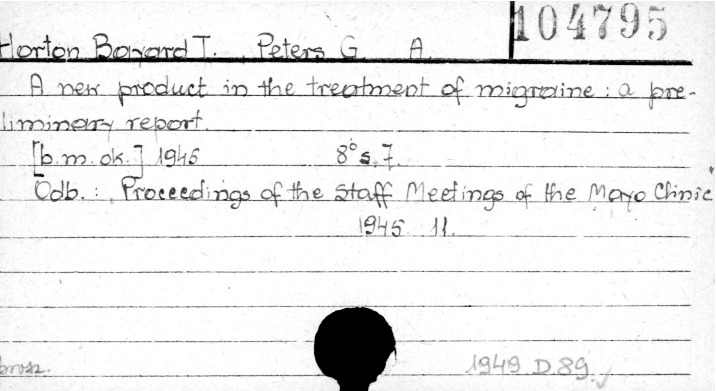 104795
Horton Bayard T. Peters G. A.
A new product in the treatment of migraine : a pre-
liminary report.
[b.m. ok.] 1945
8° s. 7.
Odb. : Proceedings of the Staff Meetings of the Mayo Clinic
1945 11.
brosz.
1949 D 89